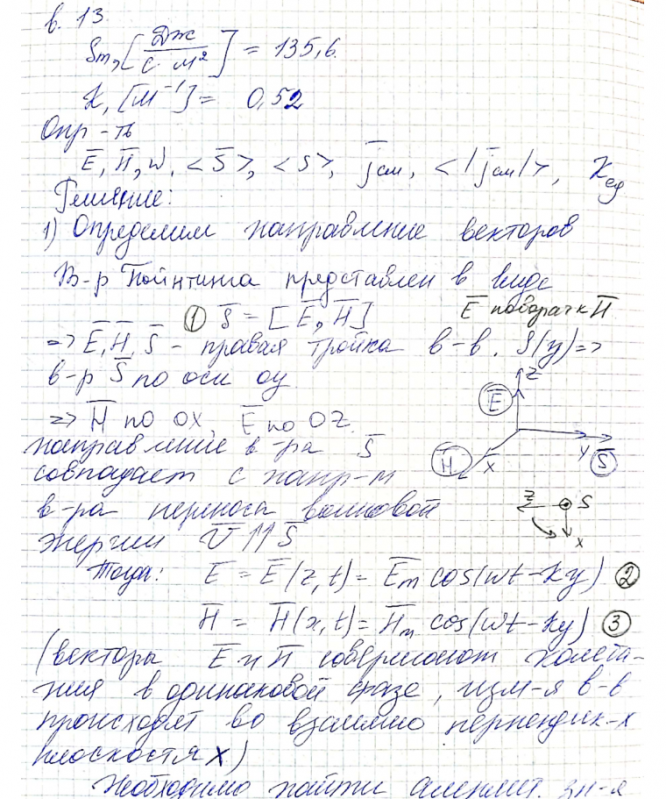 в. 13.
Sm, [Дж / с · м²] = 135,6.
K, [м⁻¹] = 0,52
Опр-ть
E̅, H̅, w, <S̅>, <S>, j̅см, <|j̅см|>, Kед
Решение:
1) Определим направление векторов
В-р Пойнтинга представлен в виде
① S̅ = [E̅, H̅] E̅ поворач к H̅
=> E̅, H̅, S̅ - правая тройка в-в. S(y) =>
в-р S̅ по оси oy
=> H̅ по OX, E̅ по OZ.
направление в-ра S̅
совпадает с напр-м
в-ра переноса волновой
энергии U̅ ↑↑ S̅
E̅ Z
H̅ X Y S̅
Z S
X
Тогда: E̅ = E̅(z,t) = E̅m cos(wt - Ky) ②
H̅ = H̅(x,t) = H̅m cos(wt - Ky) ③
(векторы E̅ и H̅ совершают колеба-
ния в одинаковой фазе, изм-я в-в
происходят во взаимно перпендик-х
плоскостях)
Необходимо найти амплит. зн-я